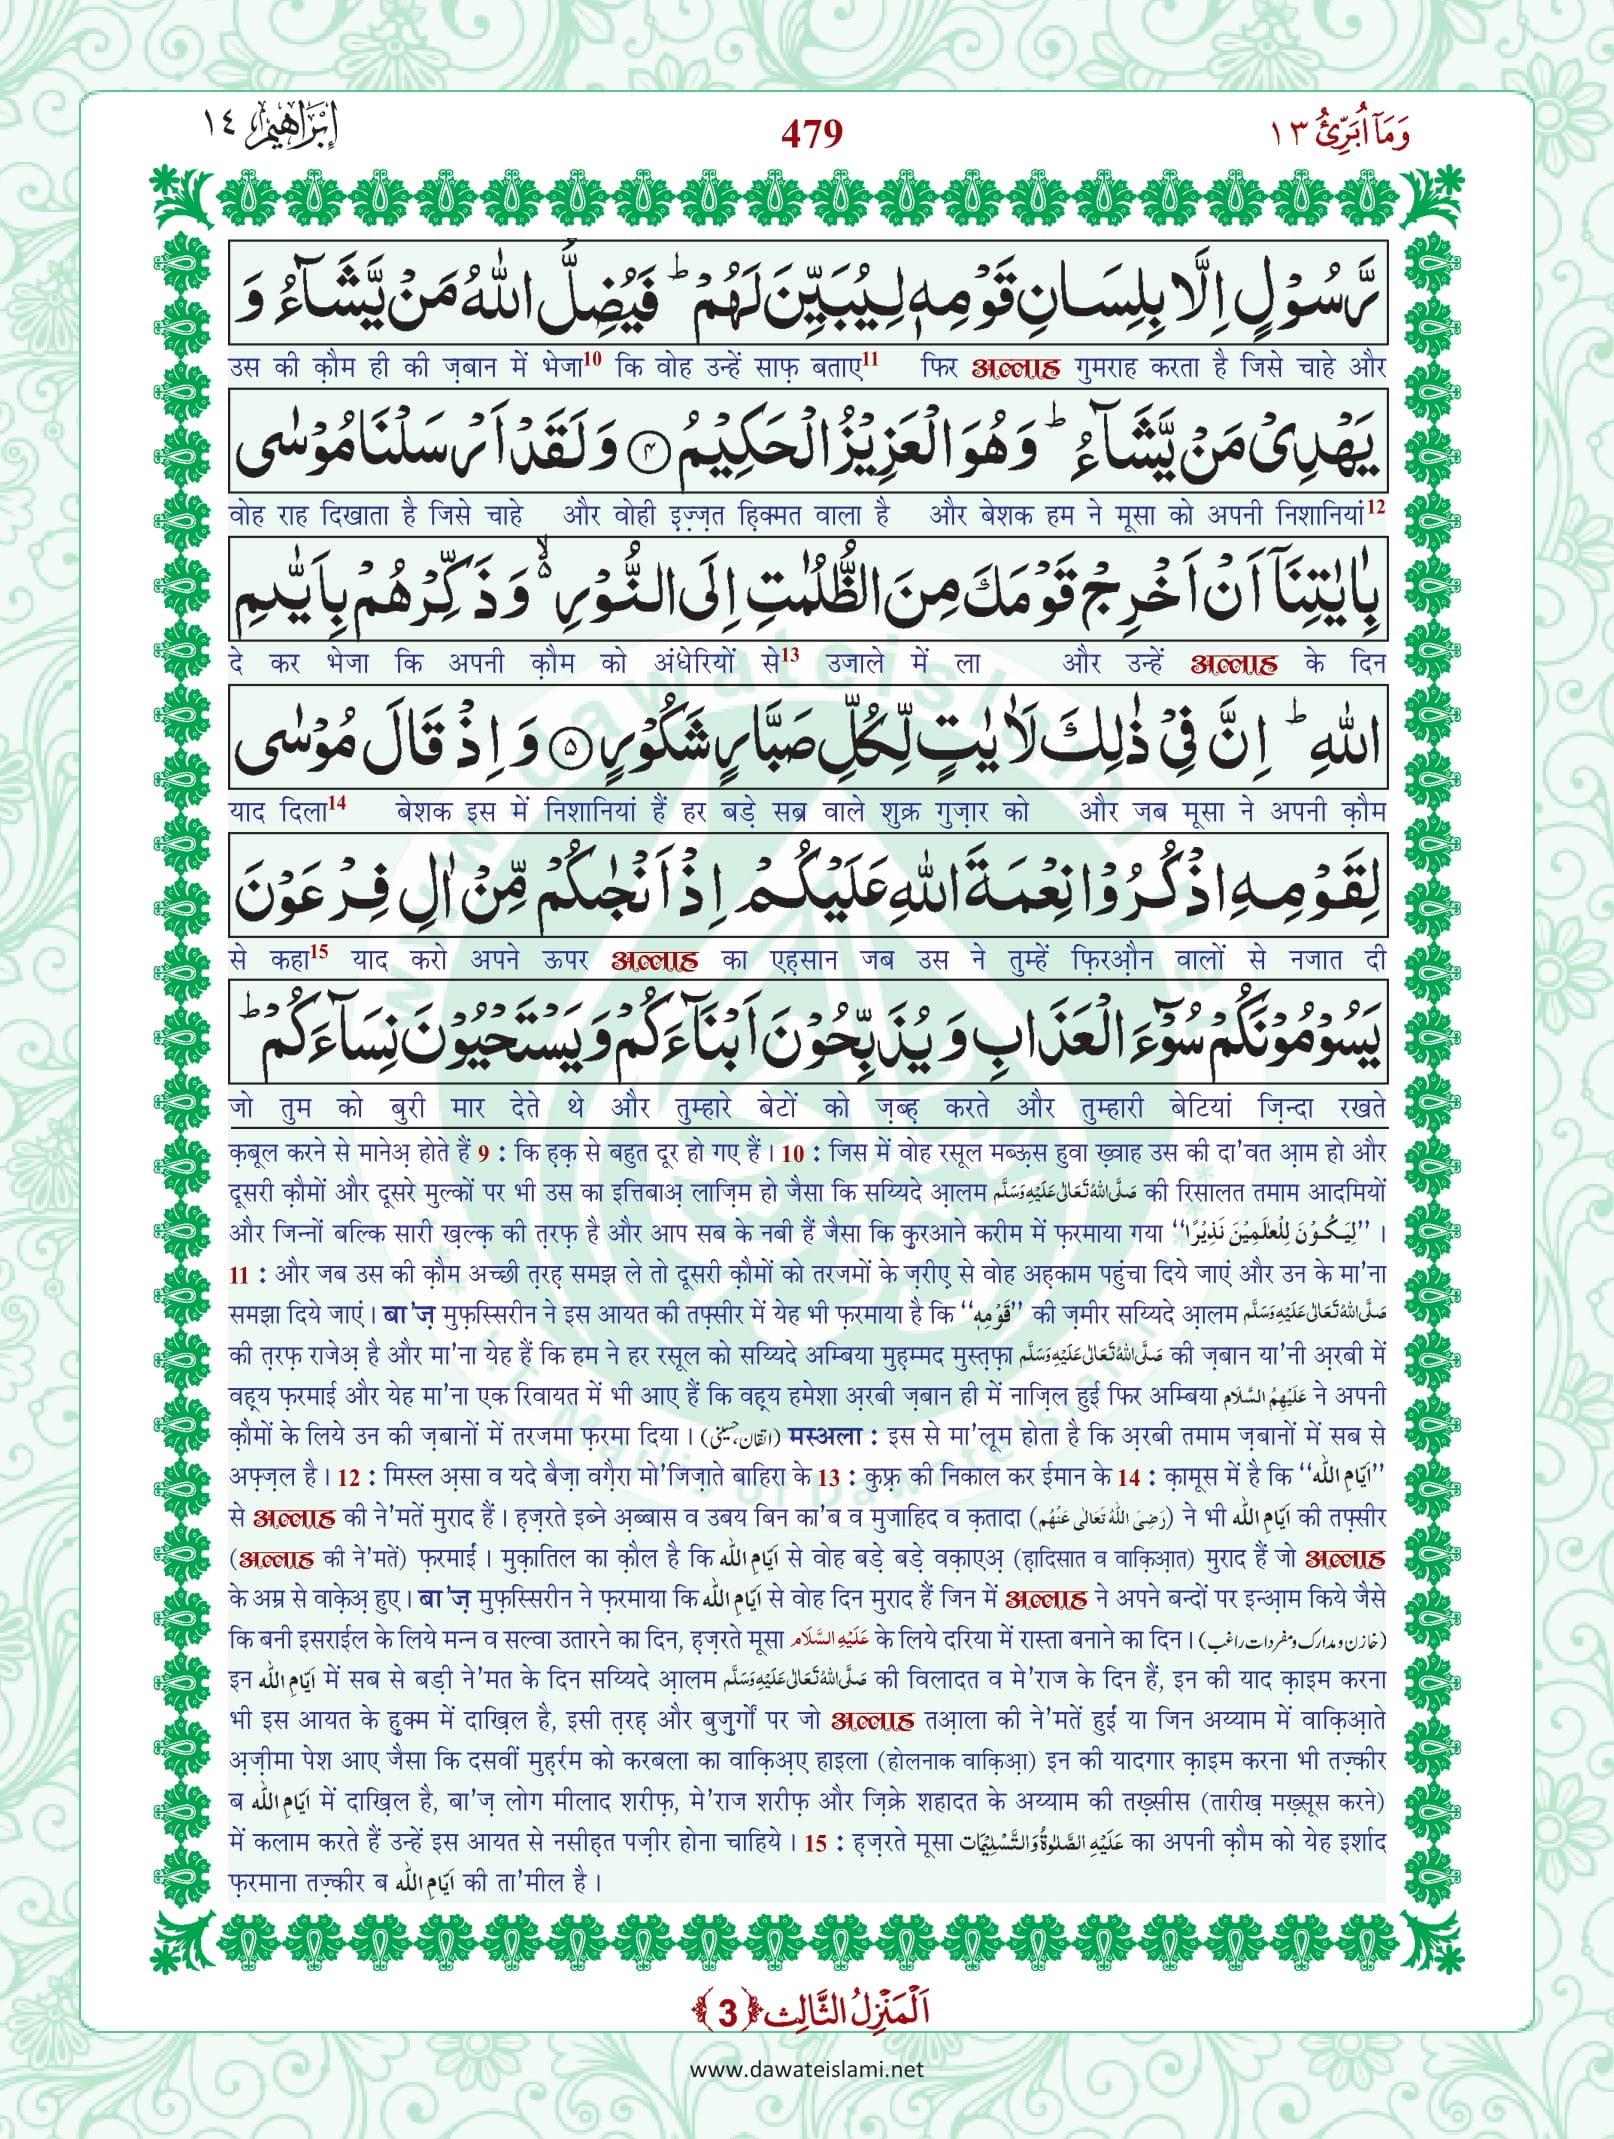 وَمَآ اُبَرِّئُ ١٣
479
اِبْرَاهِيْم ١٤
رَّسُوْلٍ اِلَّا بِلِسَانِ قَوْمِهٖ لِيُبَيِّنَ لَهُمْ ؕ فَيُضِلُّ اللّٰهُ مَنْ يَّشَآءُ وَ
उस की क़ौम ही की ज़बान में भेजा10 कि वोह उन्हें साफ़ बताए11 फिर अल्लाह गुमराह करता है जिसे चाहे और
يَهْدِىْ مَنْ يَّشَآءُ ؕ وَهُوَ الْعَزِيْزُ الْحَكِيْمُ ۝٤ وَلَقَدْ اَرْسَلْنَا مُوْسٰى
वोह राह दिखाता है जिसे चाहे और वोही इज़्ज़त हि़क्मत वाला है और बेशक हम ने मूसा को अपनी निशानियां12
بِاٰيٰتِنَآ اَنْ اَخْرِجْ قَوْمَكَ مِنَ الظُّلُمٰتِ اِلَى النُّوْرِ ۙ وَذَكِّرْهُمْ بِاَيّٰىمِ
दे कर भेजा कि अपनी क़ौम को अंधेरियों से13 उजाले में ला और उन्हें अल्लाह के दिन
اللّٰهِ ؕ اِنَّ فِيْ ذٰلِكَ لَاٰيٰتٍ لِّكُلِّ صَبَّارٍ شَكُوْرٍ ۝٥ وَاِذْ قَالَ مُوْسٰى
याद दिला14 बेशक इस में निशानियां हैं हर बड़े सब्र वाले शुक्र गुज़ार को और जब मूसा ने अपनी क़ौम
لِقَوْمِهِ اذْكُرُوْا نِعْمَةَ اللّٰهِ عَلَيْكُمْ اِذْ اَنْجٰىكُمْ مِّنْ اٰلِ فِرْعَوْنَ
से कहा15 याद करो अपने ऊपर अल्लाह का एह़सान जब उस ने तुम्हें फ़िरऔ़न वालों से नजात दी
يَسُوْمُوْنَكُمْ سُوْٓءَ الْعَذَابِ وَيُذَبِّحُوْنَ اَبْنَآءَكُمْ وَيَسْتَحْيُوْنَ نِسَآءَكُمْ ؕ
जो तुम को बुरी मार देते थे और तुम्हारे बेटों को ज़ब्ह़ करते और तुम्हारी बेटियां ज़िन्दा रखते
क़बूल करने से मानेअ़ होते हैं 9 : कि ह़क़ से बहुत दूर हो गए हैं। 10 : जिस में वोह रसूल मब्ऊ़स हुवा ख़्वाह उस की दा'वत आ़म हो और
दूसरी क़ौमों और दूसरे मुल्कों पर भी उस का इत्तिबाअ़ लाज़िम हो जैसा कि सय्यिदे आ़लम صَلَّى اللهُ تَعَالٰى عَلَيْهِ وَسَلَّم की रिसालत तमाम आदमियों
और जिन्नों बल्कि सारी ख़ल्क़ की त़रफ़ है और आप सब के नबी हैं जैसा कि कु़रआने करीम में फ़रमाया गया ‘‘لِيَكُوْنَ لِلْعٰلَمِيْنَ نَذِيْرًا’’ ।
11 : और जब उस की क़ौम अच्छी त़रह़ समझ ले तो दूसरी क़ौमों को तरजमों के ज़रीए़ से वोह अह़काम पहुंचा दिये जाएं और उन के मा'ना
समझा दिये जाएं। बा'ज़ मुफ़स्सिरीन ने इस आयत की तफ़्सीर में येह भी फ़रमाया है कि ‘‘قَوْمِهٖ’’ की ज़मीर सय्यिदे आ़लम صَلَّى اللهُ تَعَالٰى عَلَيْهِ وَسَلَّم
की त़रफ़ राजेअ़ है और मा'ना येह हैं कि हम ने हर रसूल को सय्यिदे अम्बिया मुह़म्मद मुस्त़फ़ा صَلَّى اللهُ تَعَالٰى عَلَيْهِ وَسَلَّم की ज़बान या'नी अ़रबी में
वह़्य फ़रमाई और येह मा'ना एक रिवायत में भी आए हैं कि वह़्य हमेशा अ़रबी ज़बान ही में नाज़िल हुई फिर अम्बिया عَلَيْهِمُ السَّلَام ने अपनी
क़ौमों के लिये उन की ज़बानों में तरजमा फ़रमा दिया। (اتقان، حسینی) मस्अला : इस से मा'लूम होता है कि अ़रबी तमाम ज़बानों में सब से
अफ़्ज़ल है। 12 : मिस्ल अ़सा व यदे बैज़ा वग़ैरा मो'जिज़ाते बाहिरा के 13 : कुफ़्र की निकाल कर ईमान के 14 : क़ामूस में है कि ‘‘اَيَّامِ الله’’
से अल्लाह की ने'मतें मुराद हैं। ह़ज़रते इब्ने अ़ब्बास व उबय बिन का'ब व मुजाहिद व क़तादा (رَضِىَ اللهُ تَعَالٰى عَنْهُم) ने भी اَيَّامِ الله की तफ़्सीर
(अल्लाह की ने'मतें) फ़रमाईं। मुक़ातिल का क़ौल है कि اَيَّامِ الله से वोह बड़े बड़े वक़ाएअ़ (ह़ादिसात व वाक़िआ़त) मुराद हैं जो अल्लाह
के अम्र से वाक़ेअ़ हुए। बा'ज़ मुफ़स्सिरीन ने फ़रमाया कि اَيَّامِ الله से वोह दिन मुराद हैं जिन में अल्लाह ने अपने बन्दों पर इन्आ़म किये जैसे
कि बनी इसराईल के लिये मन्न व सल्वा उतारने का दिन, ह़ज़रते मूसा عَلَيْهِ السَّلَام के लिये दरिया में रास्ता बनाने का दिन। (خازن و مدارک و مفردات راغب)
इन اَيَّامِ الله में सब से बड़ी ने'मत के दिन सय्यिदे आ़लम صَلَّى اللهُ تَعَالٰى عَلَيْهِ وَسَلَّم की विलादत व मे'राज के दिन हैं, इन की याद क़ाइम करना
भी इस आयत के हु़क्म में दाख़िल है, इसी त़रह़ और बुज़ुर्गों पर जो अल्लाह तआ़ला की ने'मतें हुईं या जिन अय्याम में वाक़िआ़ते
अ़ज़ीमा पेश आए जैसा कि दसवीं मुह़र्रम को करबला का वाक़िअ़ए हाइला (होलनाक वाक़िआ़) इन की यादगार क़ाइम करना भी तज़्कीर
ब اَيَّامِ الله में दाख़िल है, बा'ज़ लोग मीलाद शरीफ़, मे'राज शरीफ़ और ज़िक्रे शहादत के अय्याम की तख़्सीस (तारीख़ मख़्सूस करने)
में कलाम करते हैं उन्हें इस आयत से नसीह़त पज़ीर होना चाहिये। 15 : ह़ज़रते मूसा عَلَيْهِ الصَّلٰوةُ وَالتَّسْلِيْمَات का अपनी क़ौम को येह इर्शाद
फ़रमाना तज़्कीर ब اَيَّامِ الله की ता'मील है।
اَلْمَنْزِلُ الثَّالِث ﴿3﴾
www.dawateislami.net